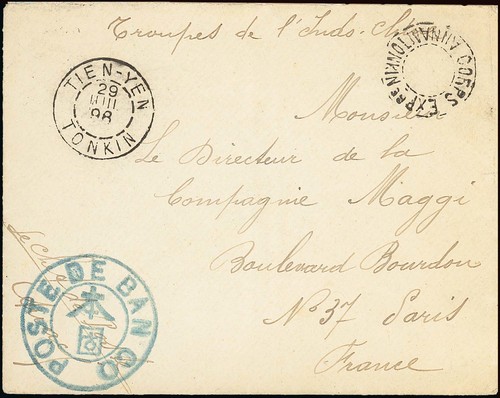 Troupes de l'Indo-Chine
CORPS EXPRE TONKIN ANNAM
TIEN-YEN
29
98
TONKIN
Monsieur
Le Directeur de la
Compagnie Maggi
Boulevard Bourdon
N° 37 Paris
France
POSTE DE BAN CO
本
Le Chef de